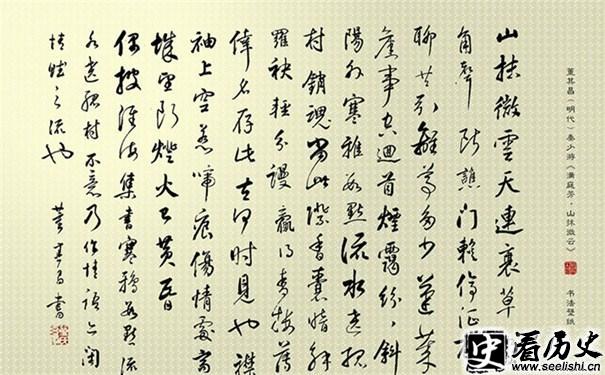 山抹微雲天連衰草
角聲斷譙門暫停征
聊共引離尊多少蓬萊
舊事空迴首煙靄紛紛斜
陽外寒鴉數點流水遶孤
村銷魂當此際香囊暗解
羅袂輕分謾贏得青樓薄
倖名存此去何時見也襟
袖上空惹啼痕傷情處高
城望斷燈火已黃昏
偶披淮海集書寒鴉數點流
水遶孤村不意乃作情語亦閑
情賦之流也 董其昌書
董其昌（明代）秦少游《满庭芳·山抹微云》
书法壁纸
史看历史
www.seelishi.cn